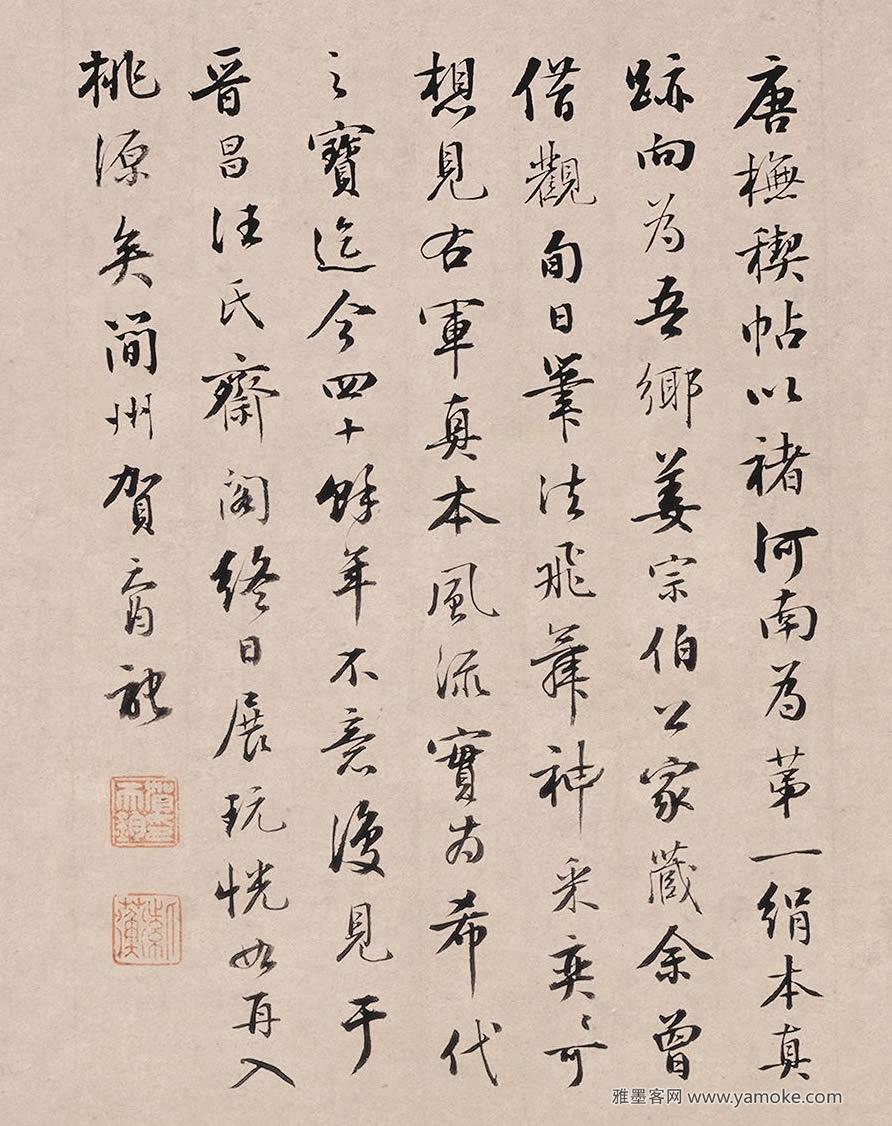 唐橅稧帖以褚河南為苐一絹本真
跡向為吾鄉姜宗伯公家藏余曾
借觀旬日筆法飛舞神采奕〻可
想見右軍真本風流實為希代
之寶迄今四十餘年不意復見于
晉昌汪氏齋閣終日展玩恍如再入
桃源矣簡州賀
雅墨客网 www.yamoke.com